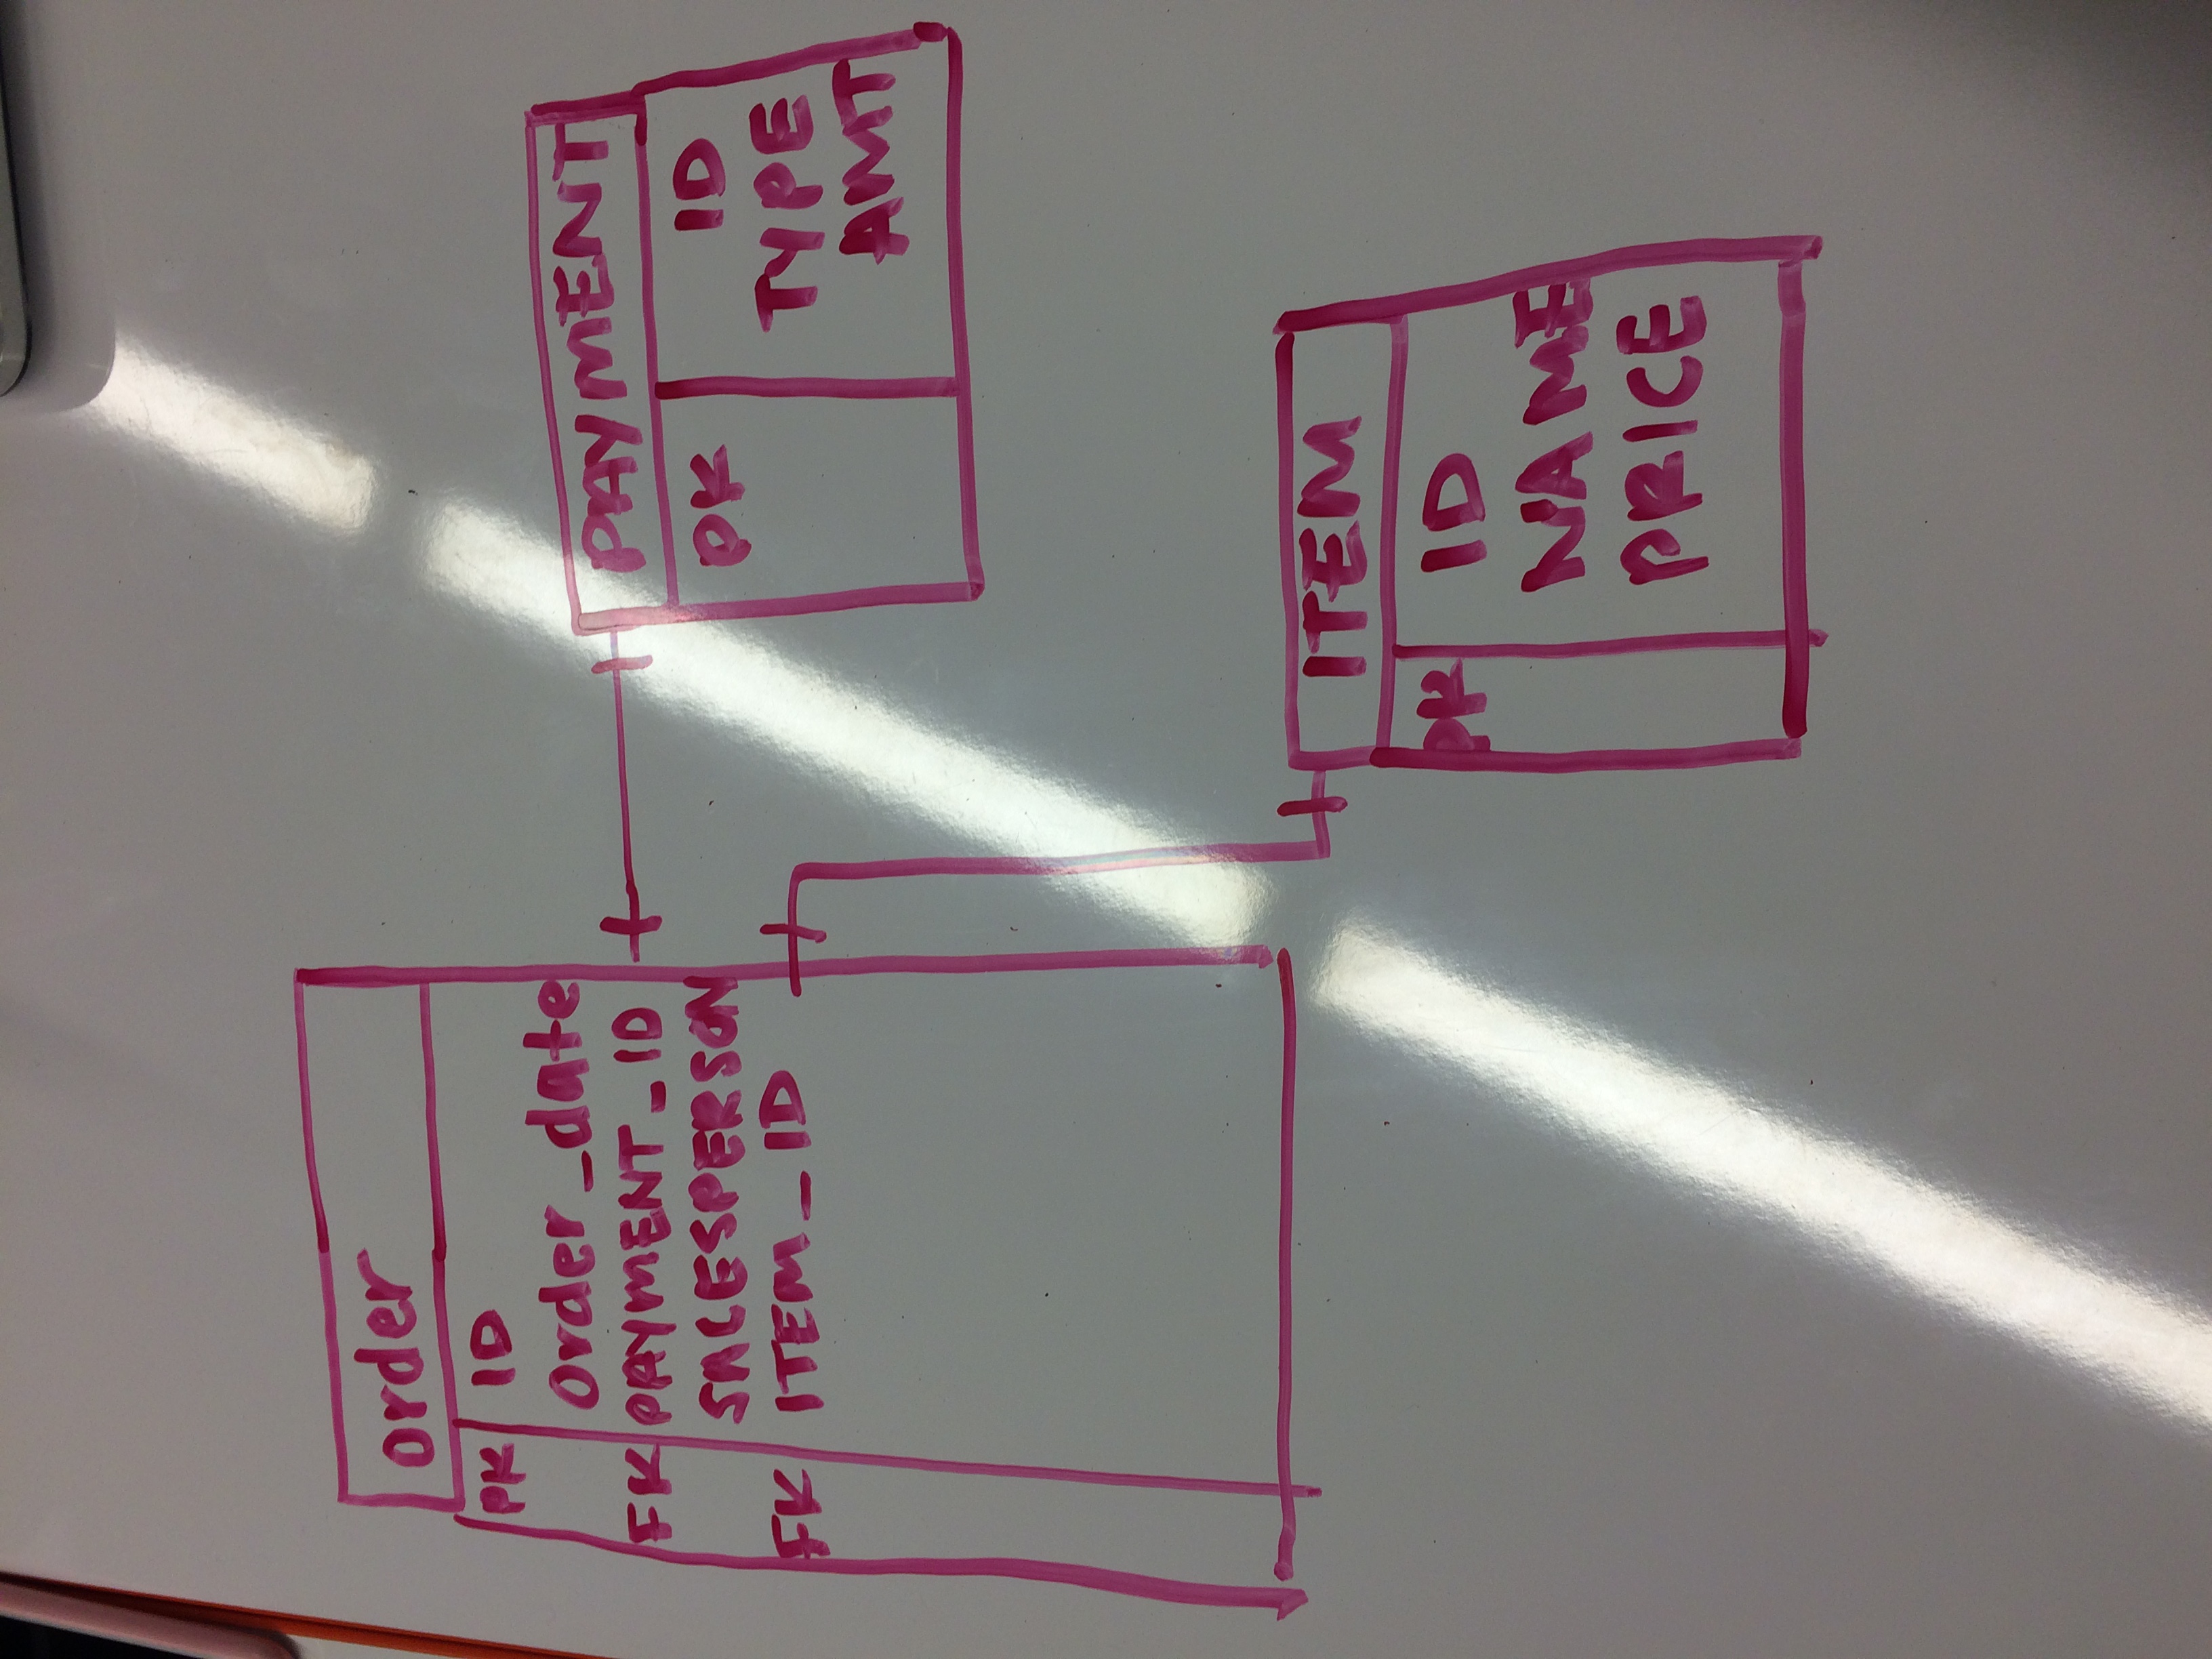 order
PK ID
order_date
FK PAYMENT_ID
SALESPERSON
FK ITEM_ID
PAYMENT
PK ID
TYPE
AMT
ITEM
PK ID
NAME
PRICE